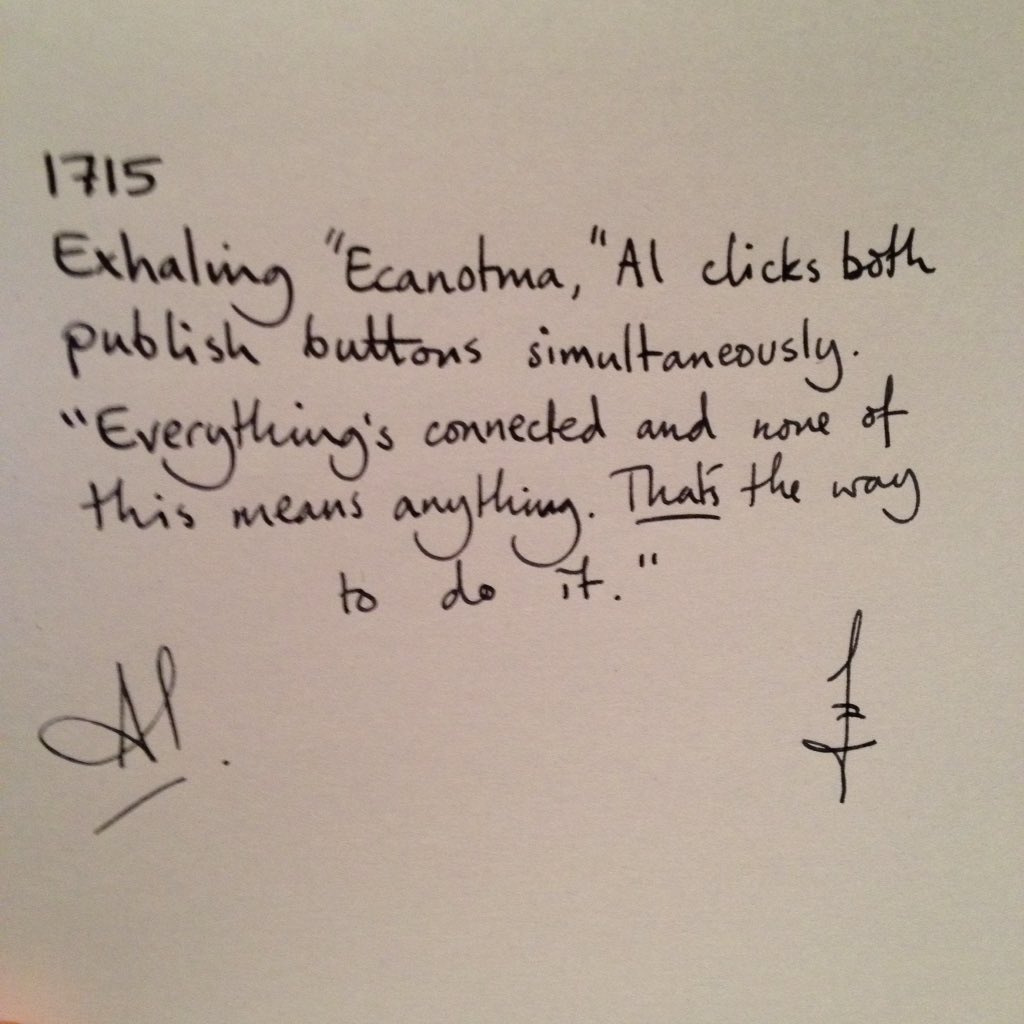 1715
Exhaling "Ecanotma," Al clicks both
publish buttons simultaneously.
"Everything's connected and none of
this means anything. That's the way
to do it."
Al.